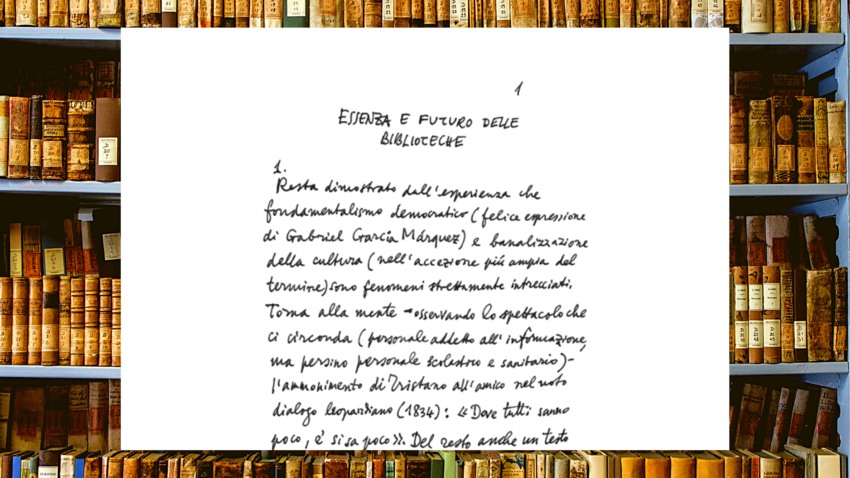 1
ESSENZA E FUTURO DELLE
BIBLIOTECHE
1.
Resta dimostrato dall'esperienza che
fondamentalismo democratico (felice espressione
di Gabriel García Márquez) e banalizzazione
della cultura (nell'accezione piú ampia del
termine) sono fenomeni strettamente intrecciati.
Torna alla mente – osservando lo spettacolo che
ci circonda (personale addetto all'informazione,
ma persino personale scolastico e sanitario) –
l'ammonimento di Tristano all'amico nel noto
dialogo leopardiano (1834): «Dove tutti sanno
poco, e' si sa poco». Del resto anche un testo